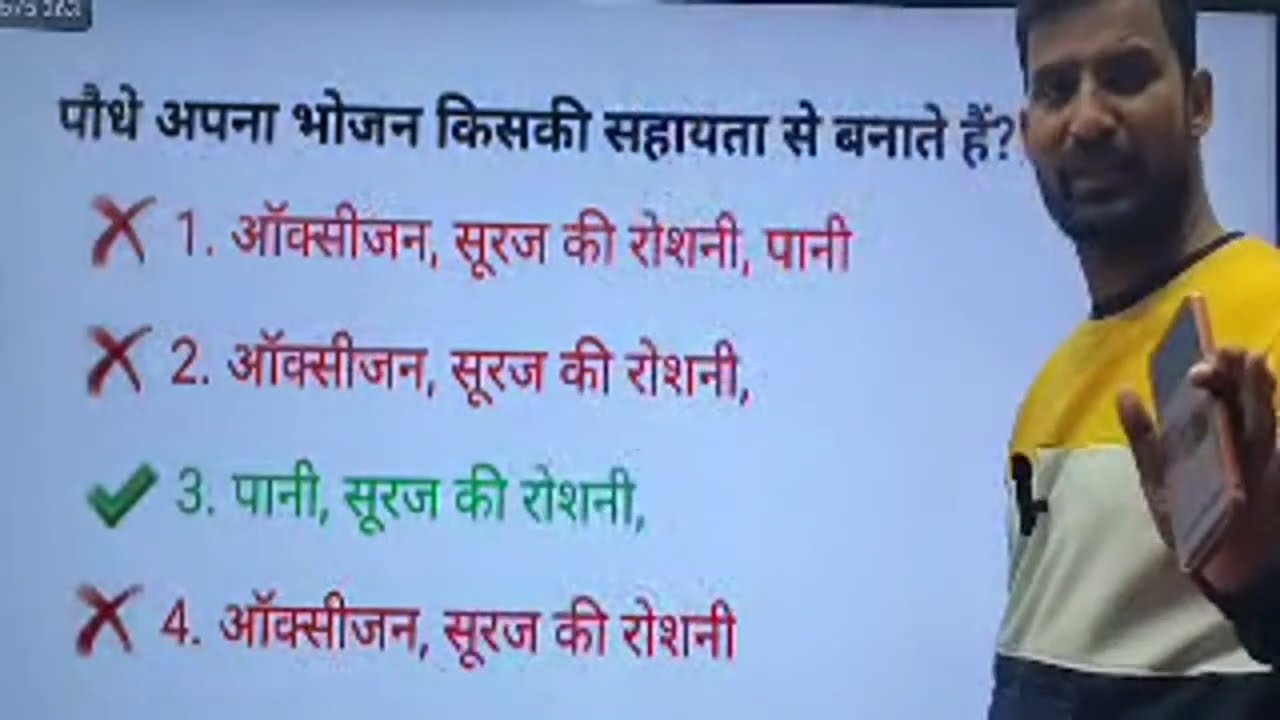 पौधे अपना भोजन किसकी सहायता से बनाते हैं?
1. ऑक्सीजन, सूरज की रोशनी, पानी
2. ऑक्सीजन, सूरज की रोशनी,
3. पानी, सूरज की रोशनी,
4. ऑक्सीजन, सूरज की रोशनी